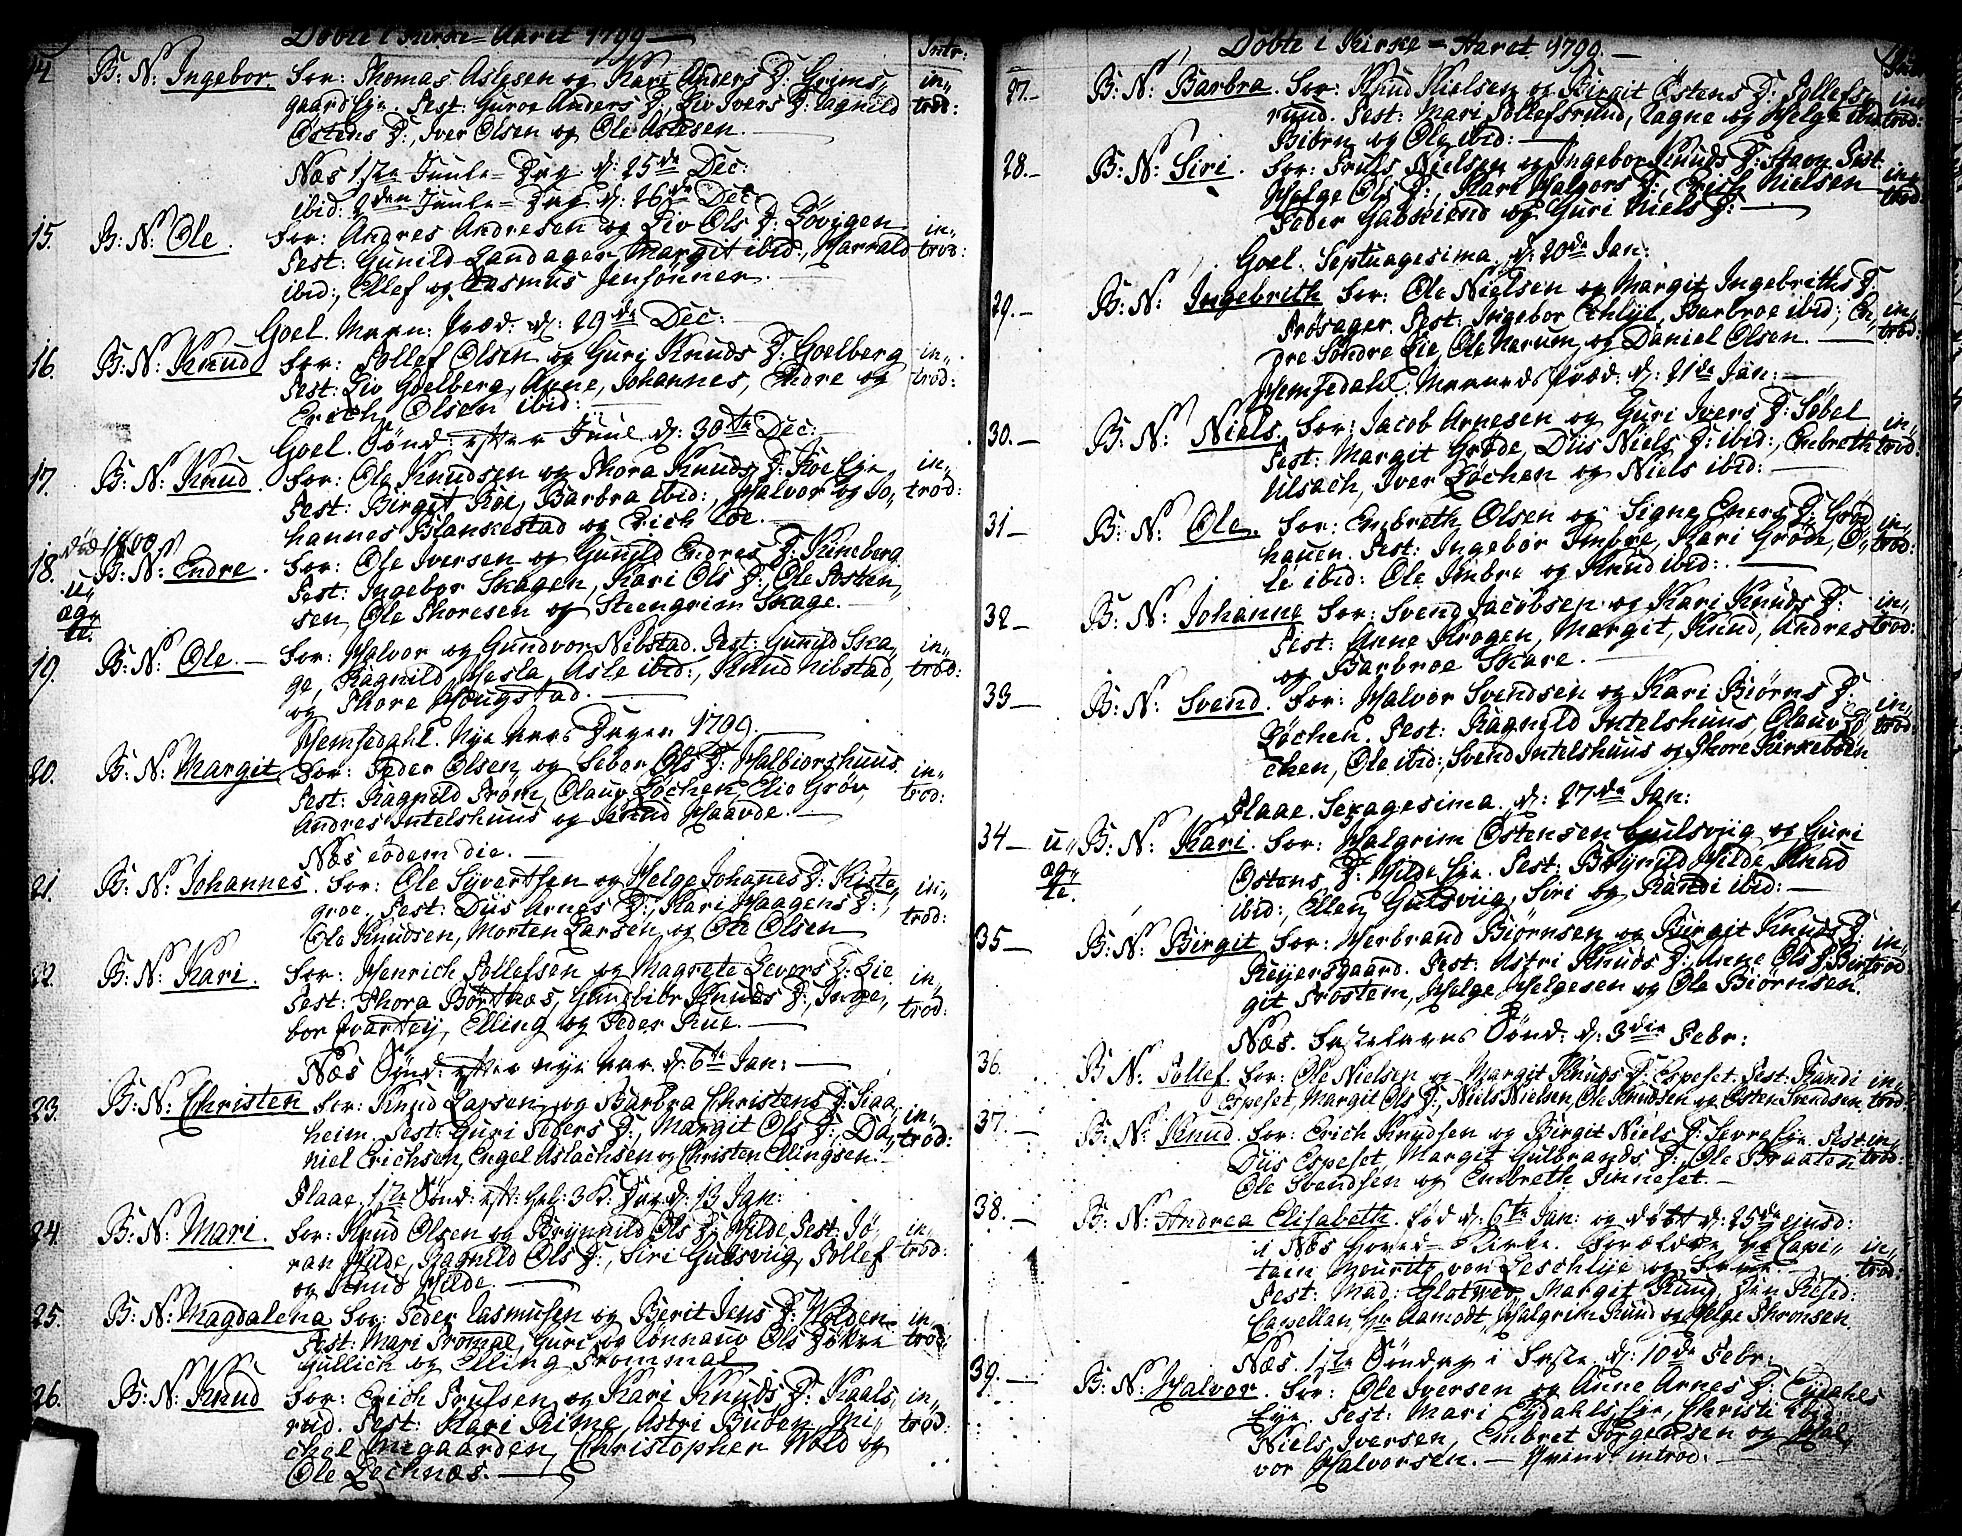 Döbte i Kirke-Aaret 1799 —
Intr:
14. B: N: Ingebor. For: Thomas Aslesen og Kari Anders D: Grims, in,,
gaards Eje. Test: Guroe Anders D:, Liv Ivers D: Ragnild trod:
Östens D:, Iver Olsen og Ole Aslesen. —
Næs 1ste Juule-Dag d: 25de Dec:
ibid: 2den Juule-Dag d: 26de Dec
15. B: N: Ole. For: Andres Andresen og Liv Ols D: Lövigen in,,
Test: Gunild Sandager, Margit ibid:, Harrald trod:
ibid:, Ellef og Rasmus Jensönner.
Goel. d: 29de Dec:
16. B: N: Knud For: Tollef Olsen og Guri Knuds D: Goelberg in,,
Test: Liv Goelberg, Anne, Johannes, Endre og trod:
Erich Olsen ibid: —
Goel. Sönd: efter Juul d: 30te Dec:
17. B: N: Knud. For: Ole Knudsen og Thora Knuds D: Roe Eje in,,
Test: Birgit Roe, Barbra ibid:, Halvor og Jo, trod:
hannes Blankestad og Erich Roe.
död 1800
18. B: N: Endre. For: Ole Iversen og Gunild Endres D: Kineberg.
u,, Test: Ingebor Skagen, Kari Ols D:, Ole Tosten,
æg,, sen, Ole Thoresen og Steengrim Skage. —
te.
19. B: N: Ole. — For: Halvor og Gundvor Nibstad. Test: Gunild Ska, in,,
ge, Ragnild Hesla, Asle ibid:, Knud Nibstad, trod:
og Thore Hougstad. —
Hemsedahl. Nye Aars Dagen 1799.
20. B: N: Margit For: Peder Olsen og Sebor Ols D: Halbiorshuus. in,,
Test: Ragnild Tröm, Olauv Löchen, Elie Gröv, trod:
Andres Intelshuus og Knud Haavde. —
Næs eodem die. —
21. B: N: Johannes. For: Ole Syvertsen og Helge Johannes D: Kiste, in,,
groe. Test: Diis Arnes D:, Kari Haagens D:, trod:
Ole Knudsen, Morten Larsen og Ole Olsen
22. B: N: Kari. For: Henrich Tollefsen og Magrete Levors D: Lie in,,
Test: Thora Börtnæs, Gundbiör Knuds D:, Inge, trod:
bor Elling og Peder Rue. —
Næs Sönd: efter nye Aar d: 6te Jan: —
23. B: N: Christen For: Knud Larsen og Barbra Christens D: Siaa, in,,
heim. Test: Guri Peders D:, Margit Ols D:, Da, trod:
niel Erichsen, Engel Aslachsen og Christen Ellingsen.
Flaae. 1ste Sönd: eft: Hel: 3 K: Dag d: 13 Jan:
24. B: N: Mari. For: Knud Olsen og Brynnild Ols D: Hilde Test: Jö, in,
ran Hilde, Ragnild Ols D:, Siri Gulsviig, Tollef trod:
og Knud Hilde. —
25. B: N: Magdalena For: Peder Rasmusen og Berit Jens D: Wolden in,
Test: Mari Tromal, Guri og Rönnauv Ols Dökre trod:
Gullich og Elling Trommal
26. B: N: Knud For: Erich Trulsen og Kari Knuds D: Kaals, in,
rud. Test: Kari Rime, Astri Buöen, Mi, trod:
chel Christopher Wold og
Ole Lechnæs. —
Döbte i Kirke-Aaret 1799. —
27.— B: N: Barbra. For: Knud Nielsen og Birgit Östens D: Tollefs, in,,
rud. Test: Mari Tollefsrud, Ragne og Helge ibid trod:
Biörn og Ole ibid: —
28.— B: N: Siri. For: Truls Nielsen og Ingebor Knuds D: Stavn Test in,
Helge Ols D:, Kari Halvors D:, Erich Nielsen trod:
Peder og Guri Niels D: —
Goel. Septuagesima. d: 20de Jan:
29.— B: N: Ingebrith For: Ole Nielsen og Margit Ingebriths D:
Trösager. Test: Ingebor Barbroe ibid:, En, in,
dre Söndre Lie, Ole Narum og Daniel Olsen. — trod:
Hemsedahl. d: 21de Jan: —
30.— B: N: Niels. For: Jacob Arnesen og Guri Ivers D: Söbel in,
Test: Margit Gröde, Diis Niels D: ibid:, Embreth trod:
Ulsach, Iver Löchen og Niels ibid: —
31— B: N: Ole. For: Embreth Olsen og Signe Eners D: in,
hauen. Test: Ingebor Imbre, Kari Gröde, O, trod:
le ibid: Ole Imbre og Knud ibid: —
32— B: N: Johanne For: Svend Jacobsen og Kari Knuds D: in,,
Test: Anne Krogen, Margit, Knud, Andres trod:
og Barbroe Skare. —
33— B: N: Svend. For: Halvor Svendsen og Kari Biörns D: in,
Löchen. Test: Ragnild Intelshuus, Olauv Lö, trod:
chen, Ole ibid:, Svend Intelshuus og Thore Kirkeböen
Flaae. Sexagesima. d: 27de Jan:
34— u,, B: N: Kari. For: Halgrim Östensen Gulsviig og Guri
æg,, Ostens D: Hilde Eje. Test: Brynild Hilde, Knud
te. ibid:, Ellen Gulsviig, Siri og Randi ibid: —
35— B: N: Birgit For: Herbrand Biörnsen og Birgit Knuds D: in,
Reijersgaard. Test: Astri Knuds D: Anne Ols D: Bir, trod:
git Frostem, Helge Helgesen og Ole Biörnsen.
Næs. Fastelavns Sönd: d: 3die Febr:
36. B: N: Tollef. For: Ole Nielsen og Margit Knuds D: Espeset. Test: Randi in,
Espeset, Margit Ols D:, Niels Nielsen, Ole Knudsen og Östen Svendsen trod:
37.— B: N: Knud. For: Erich Knudsen og Birgit Niels D: Sevre Eje. Test in,
Diis Espeset, Margit Gulbrands D:, Ole Braaten trod:
Ole Svendsen og Embreth Finneset. —
38.— B: N: Andrea Elisabeth. Föd d: 6te Jan: og döbt d: 25de ejusd:
i Næs Hoved-Kirke. Forældre Hr Capi, in,
tain Mouritz von Leschlye og Frue. — trod:
Test: Mad: Glatved, Margit Ruud, Resid:
Capellan Hr Aamodt, Halgrim Ruud og Helge Thronsen.
Næs. 1ste Söndag i Faste. d: 10de Febr:
39.— B: N: Halvor. For: Ole Iversen og Anne Arnes D: Eydahls
Eje. Test: Mari Eydahls Eje, Christi ibid
Niels Iversen, Embret Torgersen og Hal,
vor Halvorsen. — Qvind: introd: —